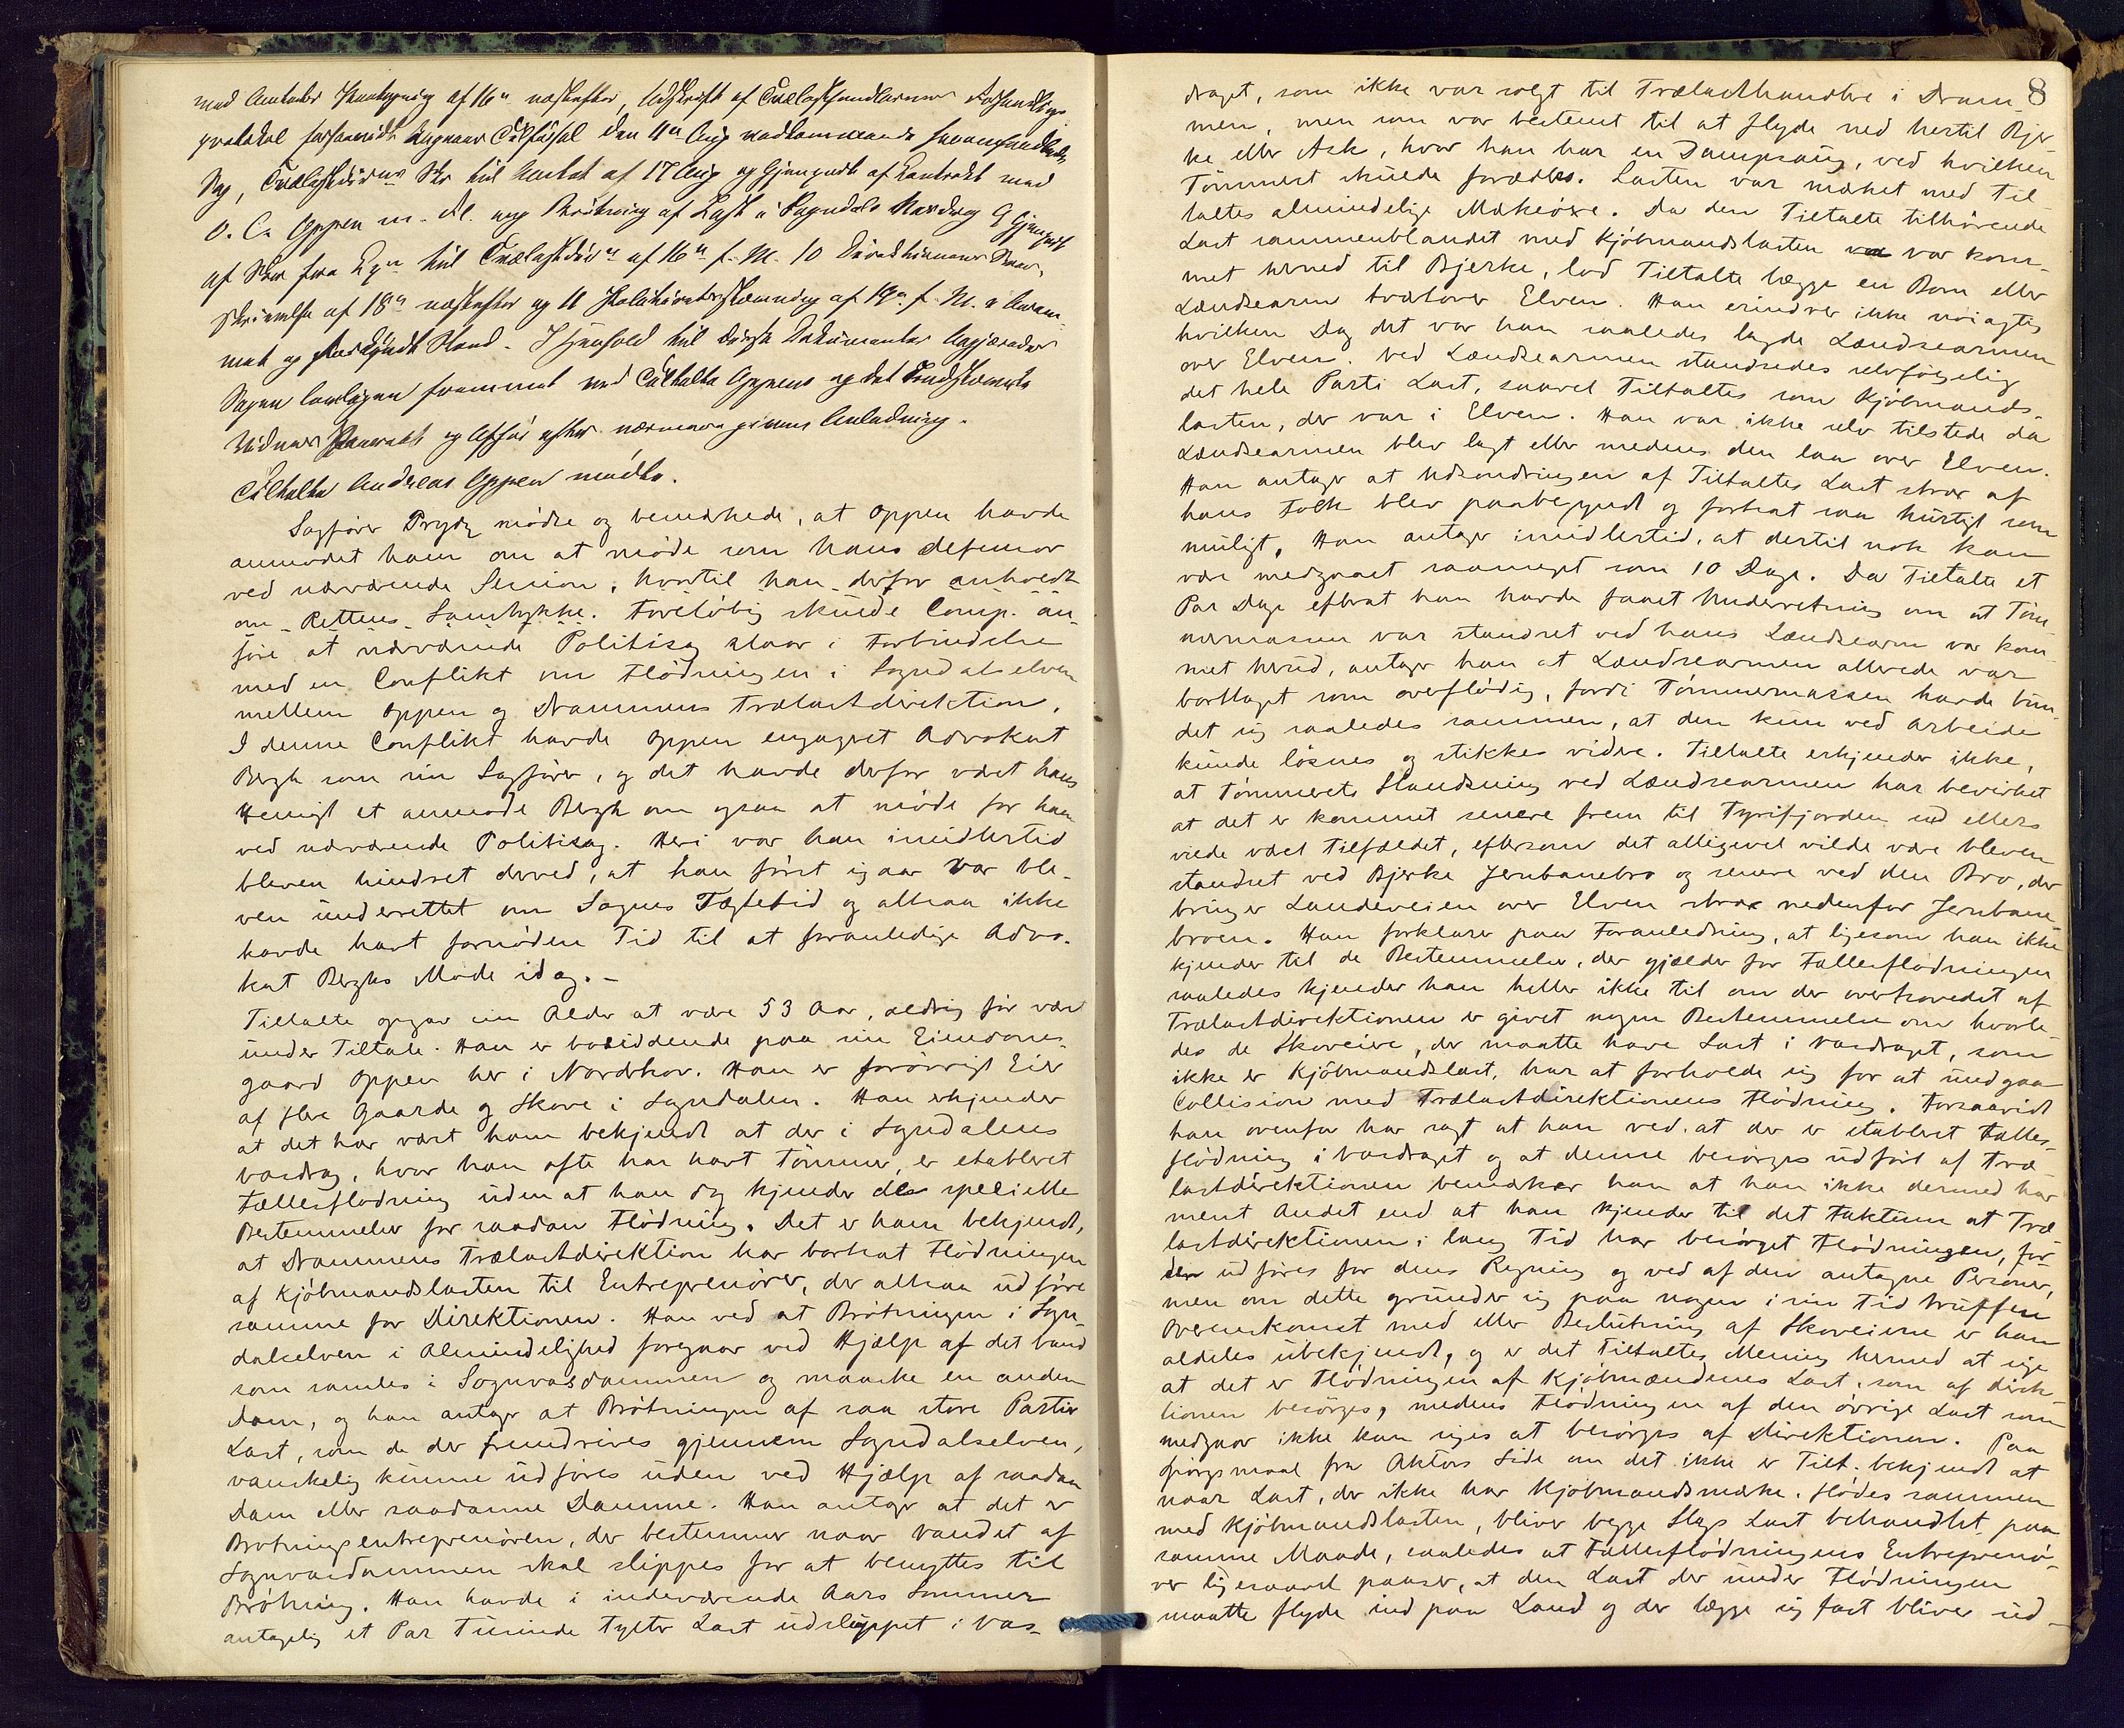 med Amtets Paategning af 16de næstefter, Udskrift af Trælasthandlernes Forhandlings-
protokol forsaavidt angaaer Tilførsel den 11te Aug vedkommende foranmeldte
Sag, Trælastdirns Skr til Amtet af 17 Aug og Gjenpart af Kontrakt med
O. C. Oppen m. Fl. ang Brøtning af Last i Sogndals Vasdrag 9 Gjenpart
af Skr fra Egn til Trælastdirn af 16de f. M. 10 Direktionens Svar-
skrivelse af 18de næstefter og 11 Politiretsstævning af 19de f. M. i
og forkyndt Stand. I Henhold til disse Dokumenter begjæredes
Sagen lovligen fremmet med Tiltalte Oppens og det indstævnte
Vidnes og Afhør efter nærmere given Anledning.
Tiltalte Andreas Oppen mødte.
Sagfører Pryds mødte og bemærkede, at Oppen havde
anmodet ham om at møde som hans defensor
ved nærværende Session, hvortil han derfor anholdt
om Rettens Samtykke. Foreløbig skulde Comp. an-
føre at nærværende Politisag staar i Forbindelse
med en Conflikt om Flødningen i Sogndalselven
mellem Oppen og Drammens Trælastdirektion.
I denne Conflikt havde Oppen engageret Advokat
Bergh som sin Sagfører, og det havde derfor været hans
Hensigt at anmode Bergh om ogsaa at møde for ham
ved nærværende Politisag. Heri var han imidlertid
bleven hindret derved, at han først igaar var ble-
ven underrettet om Sagens Tægtetid og altsaa ikke
havde havt fornøden Tid til at foranledige Advo-
kat Berghs Møde idag. –
Tiltalte opgav sin Alder at være 53 Aar, aldrig før vært
under Tiltale. Han er bosiddende paa sin Eiendoms-
gaard Oppen her i Norderhov. Han er forøvrigt Eier
af flere Gaarde og Skove i Sogndalen. Han erkjender
at det har vært ham bekjendt at der i Sogndalens
Vasdrag, hvor han ofte har havt Tømmer, er etableret
Fællesflødning uden at han dog kjender de specielle
Bestemmelser for saadan Flødning. Det er ham bekjendt,
at Drammens Trælastdirektion har bortsat Flødningen
af Kjøbmandslasten til Entreprenører, der altsaa udføre
samme for Direktionen. Han ved at Brøtningen i Sogn-
dalselven i Almindelighed foregaar ved Hjælp af det Vand
som samles i Sognvasdammen og maaske en anden
Dam, og han antager at Brøtningen af saa store Partier
Last, som de der fremdrives gjennem Sogndalselven,
vanskelig kunne udføres uden ved Hjælp af saadan
Dam eller saadanne Damme. Han antager at det er
Brøtningsentreprenøren, der bestemmer naar Vandet af
Sognvasdammen skal slippes for at benyttes til
Brøtning. Han havde i indeværende Aars Sommer
antagelig et Par Tusinde Tylter Last udsluppet i Vas-
8
draget, som ikke var solgt til Trælasthandlere i Dram-
men, men som var bestemt til at flyde ned hertil Bjer-
ke eller Ask, hvor han har en Dampsaug, ved hvilken
Tømmeret skulde forædles. Lasten var mærket med Til-
taltes almindelige Mærkeøxe. Da den Tiltalte tilhørende
Last sammenblandet med Kjøbmandslasten var kom-
met herned til Bjerke, lod Tiltalte lægge en Bom eller
Lændsearm tvætover Elven. Han erindrer ikke nøiagtig
hvilken Dag det var han saaledes lagde Lændsearmen
over Elven. Ved Lændsearmen standsedes selvfølgelig
det hele Parti Last, saavel Tiltaltes som Kjøbmands-
lasten, der var i Elven. Han var ikke selv tilstede da
Lændsearmen blev lagt eller medens den laa over Elven.
Han antager at Udsondringen af Tiltaltes Last strax af
hans Folk blev paabegyndt og fortsat saa hurtigt som
muligt. Han antager imidlertid, at dertil nok kan
være medgaaet saameget som 10 Dage. Da Tiltalte et
Par Dage efterat han havde faaet Underretning om at Tøm-
mermassen var standset ved hans Lændsearm var kom-
met herud, antager han at Lændsearmen allerede var
borttaget som overflødig, fordi Tømmermassen havde bun-
det sig saaledes sammen, at den kun ved Arbeide
kunde løsnes og stikkes videre. Tiltalte erkjender ikke,
at Tømmerets Standsning ved Lændsearmen har bevirket
at det er kommet senere frem til Tyrifjorden end ellers
vilde vært Tilfældet, eftersom det alligevel vilde være bleven
standset ved Bjerke Jernbanebro og senere ved den Bro, der
bringer Landeveien over Elven strax nedenfor Jernbane-
broen. Han forklarer paa Foranledning, at ligesom han ikke
kjender til de Bestemmelser, der gjælder for Fællesflødningen
saaledes kjender han heller ikke til om der overhovedet af
Trælastdirektionen er givet nogen Bestemmelse om hvorle-
des de Skoveiere, der maatte have Last i Vasdraget, som
ikke er Kjøbmandslast, har at forholde sig for at undgaa
Collision med Trælastdirektionens Flødning. Forsaavidt
han ovenfor har sagt at han ved at der er etableret Fælles-
flødning i Vasdraget og at denne besørges udført af Træ-
lastdirektionen bemærker han at han ikke dermed har
ment Andet end at han kjender til det Faktum at Træ-
lastdirektionen i lang Tid har besørget Flødningen, for-
den udføres for dens Regning og ved af den antagne Personer,
men om dette grunder sig paa nogen i sin Tid truffen
Overenskomst med eller Beslutning af Skoveierne er ham
aldeles ubekjendt, og er det Tiltaltes Mening hermed at sige
at det er Flødningen af Kjøbmændenes Last, som af Direk-
tionen besørges, medens Flødningen af den øvrige Last som
medgaar ikke kan siges at besørges af Direktionen. Paa
Spørgsmaal fra Aktors Side om det ikke er Tilt. bekjendt at
naar Last, der ikke har Kjøbmandsmærke, flødes sammen
med Kjøbmandslasten, bliver begge Slags Last behandlet paa
samme Maade, saaledes at Fællesflødningens Entreprenø-
rer ligesaavel paaser, at den Last der under Flødningen
maatte flyde ind paa Land og der lægge sig fast bliver ud-